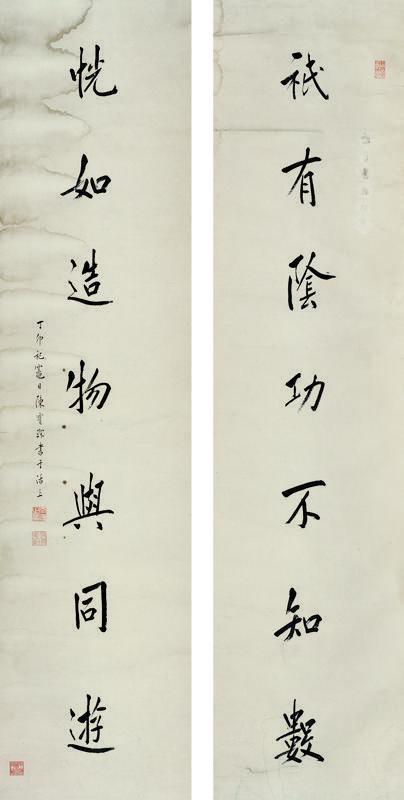 祇有陰功不知數
恍如造物與同遊
丁卯祀竈日陳寶琛書于沽上